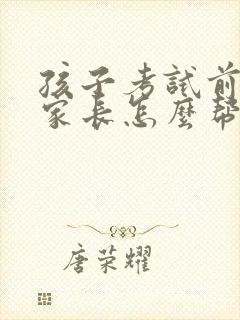 孩子考試前
家長怎麼幫
唐荣耀